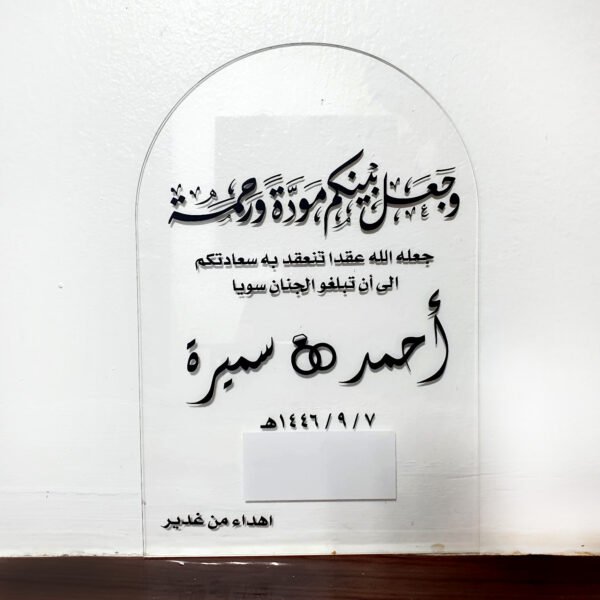 وَجَعَلَ بَيْنَكُم مَوَدَّةً وَرَحْمَةً
جعله الله عقدا تنعقد به سعادتكم
الى أن تبلغو الجنان سويا
أحمد سميرة
١٤٤٦ / ٩ / ٧هـ
اهداء من غدير